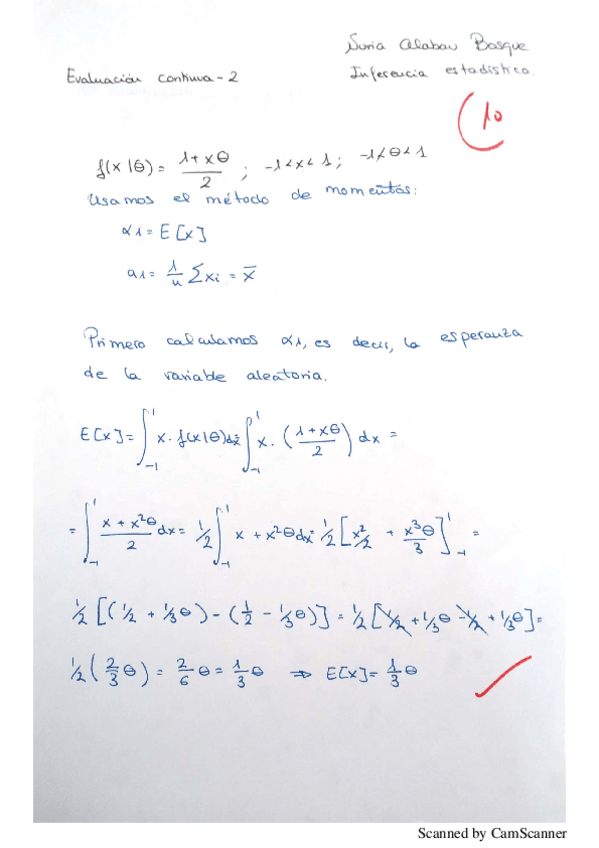 Nuria Alabau Bosque
Evaluación continua - 2
Inferencia estadística.
10
f(x|θ) = (1+xθ)/2 ; -1<x<1 ; -1<θ<1
Usamos el método de momentos:
α1 = E[x]
a1 = 1/n Σxi = x̄
Primero calculamos α1, es decir, la esperanza
de la variable aleatoria.
E[x] = ∫_{-1}^{1} x · f(x|θ)dx = ∫_{-1}^{1} x · ((1+xθ)/2) dx =
= ∫_{-1}^{1} (x + x²θ)/2 dx = 1/2 ∫_{-1}^{1} x + x²θ dx = 1/2 [x²/2 + x³θ/3]_{-1}^{1} =
1/2 [(1/2 + 1/3θ) - (1/2 - 1/3θ)] = 1/2 [1/2 + 1/3θ - 1/2 + 1/3θ] =
1/2 (2/3 θ) = 2/6 θ = 1/3 θ ⇒ E[x] = 1/3 θ
Scanned by CamScanner